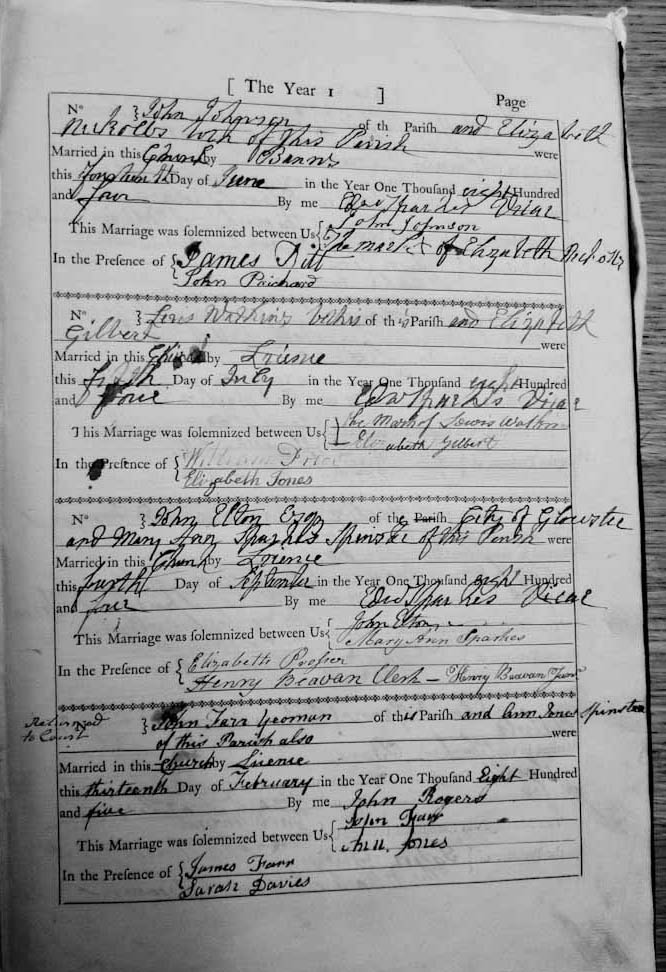 [ The Year 1 ] Page
No } John Johnson of th Parish and Elizabeth
Nickolls both of this Parish were
Married in this Church by Banns
this fourteenth Day of June in the Year One Thousand eight Hundred
and four By me Edw Sparkes Vicar
This Marriage was solemnized between Us { John Johnson
The mark x of Elizabeth Nickolls
In the Presence of { James Pitt
John Prichard
No } Lewis Watkins both is of this Parish and Elizabeth
Gilbert were
Married in this Church by Lisense
this fifth Day of July in the Year One Thousand eight Hundred
and four By me Edw Sparkes Vicar
This Marriage was solemnized between Us { the Mark of Lewis Watkins
Elizabeth Gilbert
In the Presence of { William Price
Elizabeth Jones
No } John Elton Esqr of the Parish City of Glowster
and Mary Ann Sparkes Spinster of this Parish were
Married in this Church by Lisence
this fourth Day of September in the Year One Thousand eight Hundred
and four By me Edw Sparkes Vicar
This Marriage was solemnized between Us { John Elton
Mary Ann Sparkes
In the Presence of { Elizabeth Prosser
Henry Beavan Clerk – Henry Beavan Junr
Returned
to Court
} John Farr Yeoman of this Parish and Ann Jones Spinster
of this Parish also were
Married in this Church by Lisence
this thirteenth Day of February in the Year One Thousand Eight Hundred
and five By me John Rogers
This Marriage was solemnized between Us { John Farr
Ann Jones
In the Presence of { James Farr
Sarah Davies